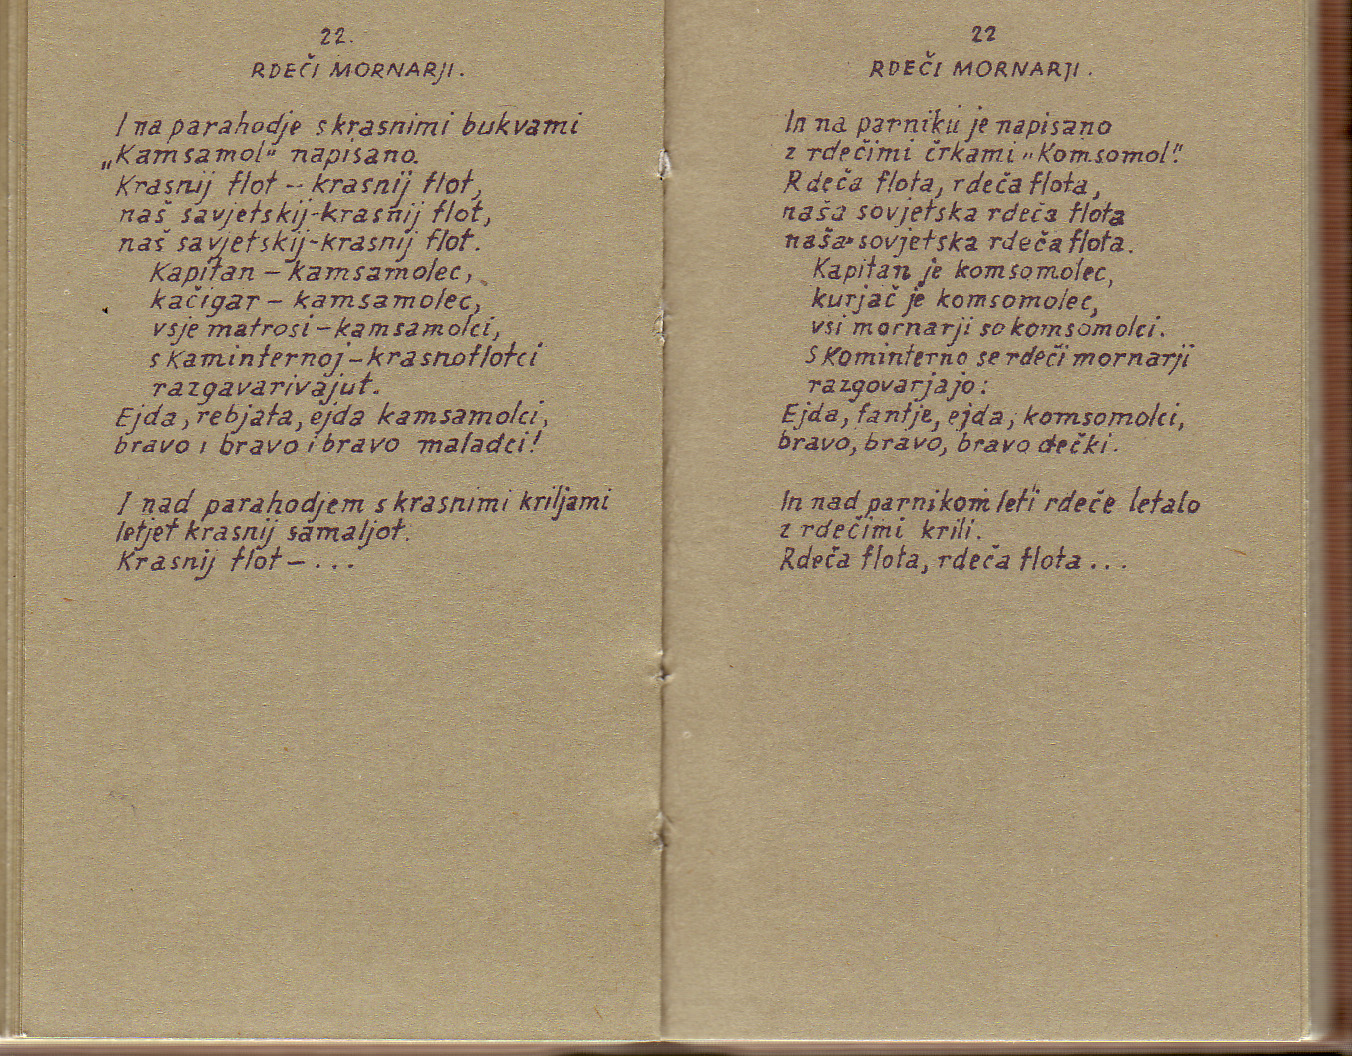 22.
RDEČI MORNARJI.
I na parahodje s krasnimi bukvami
„Kamsamol" napisano.
Krasnij flot - krasnij flot,
naš savjetskij-krasnij flot,
naš savjetskij-krasnij flot.
Kapitan - kamsamolec,
kačigar - kamsamolec,
vsje matrosi - kamsamolci,
s Kaminternoj - krasnoflotci
razgavarivajut.
Ejda, rebjata, ejda kamsamolci,
bravo i bravo i bravo maladci!
I nad parahodjem s krasnimi kriljami
letjet krasnij samaljot.
Krasnij flot - ...
22
RDEČI MORNARJI.
In na parniku je napisano
z rdečimi črkami „Komsomol".
Rdeča flota, rdeča flota,
naša sovjetska rdeča flota
naša sovjetska rdeča flota.
Kapitan je komsomolec,
kurjač je komsomolec,
vsi mornarji so komsomolci.
S Kominterno se rdeči mornarji
razgovarjajo:
Ejda, fantje, ejda, komsomolci,
bravo, bravo, bravo dečki.
In nad parnikom leti rdeče letalo
z rdečimi krili.
Rdeča flota, rdeča flota ...